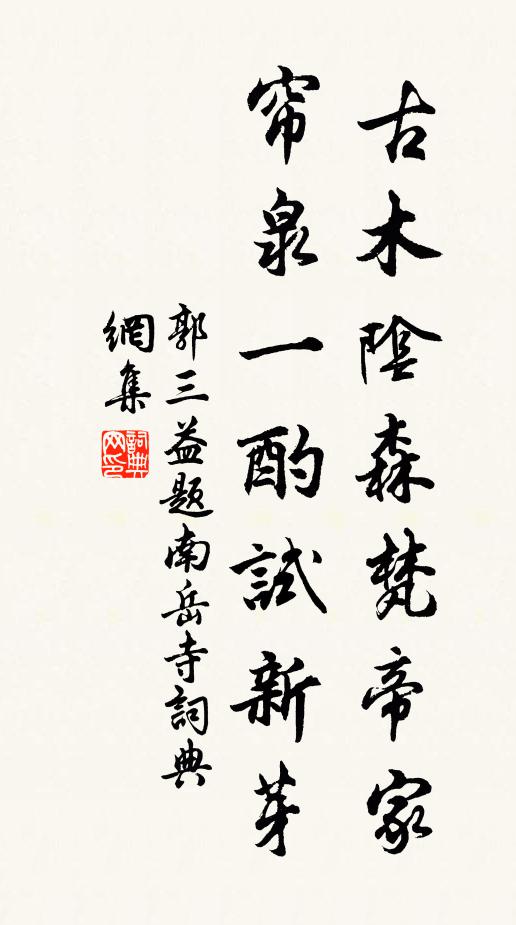 古木陰森梵帝家
帘泉一酌試新芽
郭三益题南岳寺詞典
網集
詞典
网印